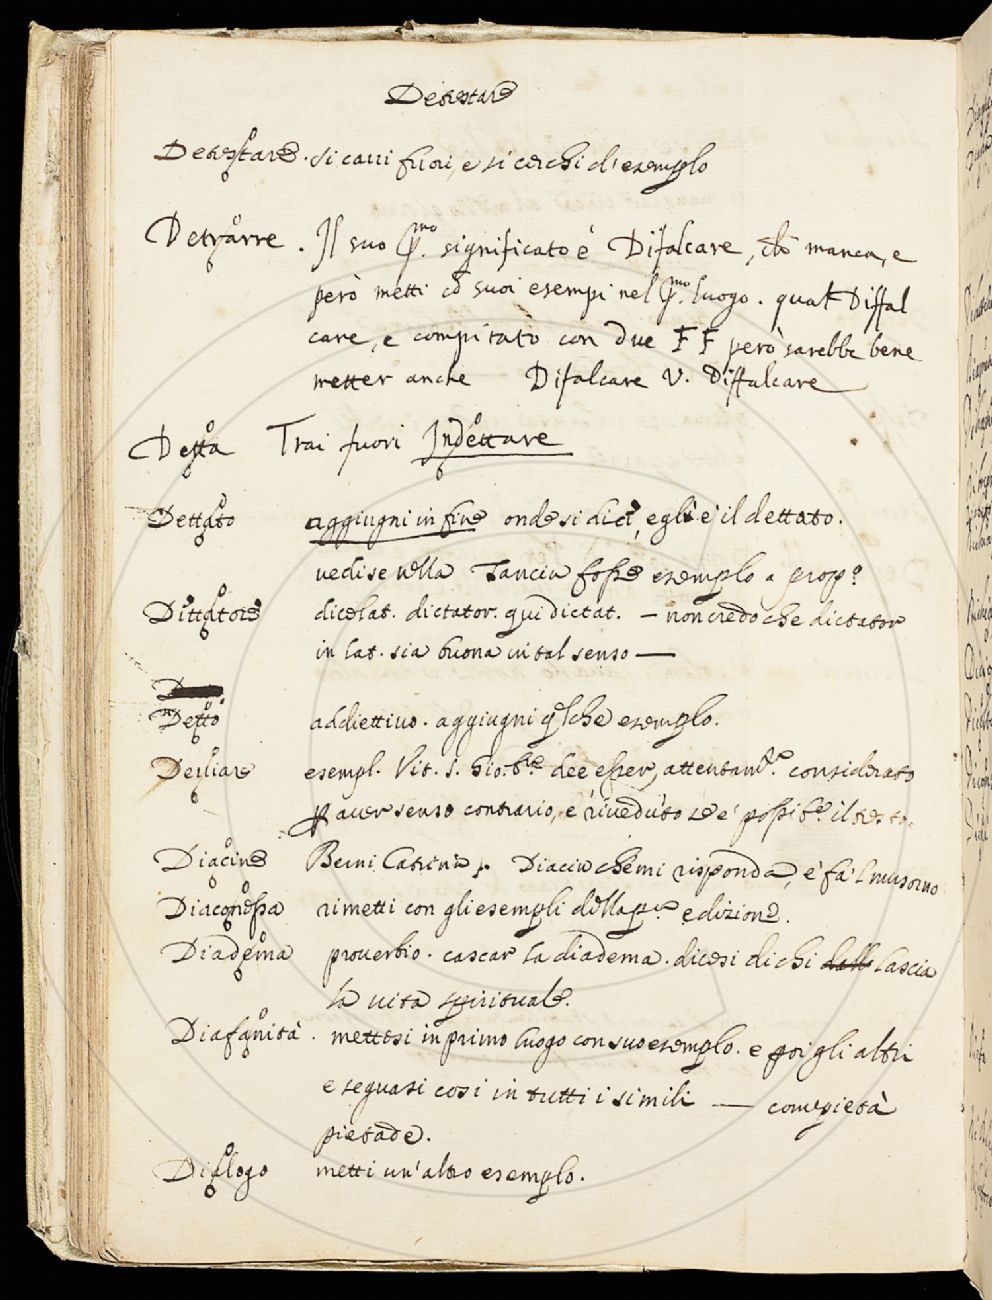 Detestare
Detestare. si cavi fuori, e si cerchi d'esempio
Detrarre. Il suo p.mo significato è Difalcare, che manca, e
però metti co suoi esempi nel p.mo luogo. qual Diffal
care, e compitato con due F F però sarebbe bene
metter anche Difalcare V. Diffalcare
Detta Trai fuori Indettare
Dettato aggiugni in fine onde si dice, egli è il dettato.
vedi se nella Tancia fosse esempio a prop.o
Dittatore dice lat. dictator. qui dictat. — non credo che dictator
in lat. sia buona in tal senso —
Detto addiettivo. aggiugni qlche esempio.
esempl. Vit. S. Gio: dee esser attentam.e considerato
p aver senso contrario, e riveduto se è possib.e il testo.
Diacine Berni Catrina. Diacin che mi risponda, e fa 'l musorno
Diaconessa rimetti con gli esempli della edizione.
Diadema proverbio. cascar la diadema. dicesi di chi lascia
la vita spirituale.
Diafanità. mettesi in primo luogo con suo esemplo. e poi gli altri
e seguasi così in tutti i simili — come pietà
pietade.
Dialogo metti un'altro esemplo.